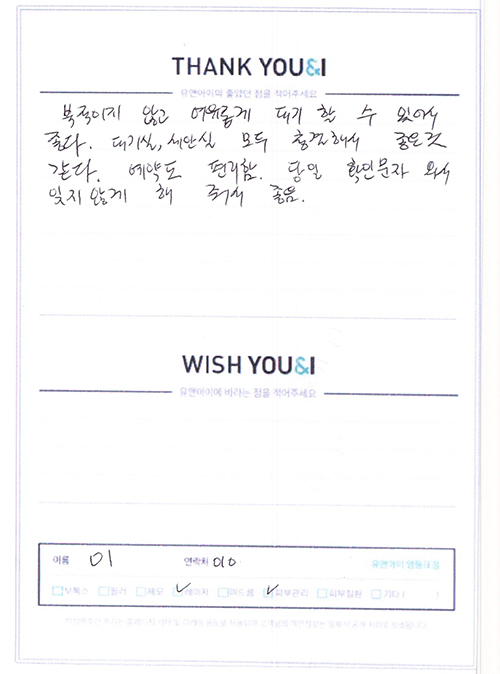 THANK YOU&I
유앤아이의 좋았던 점을 적어주세요
북적이지 않고 여유롭게 대기 할 수 있어서
좋다. 대기실, 세안실 모두 청결해서 좋은것
같다. 예약도 편리함. 당일 확인문자 와서
잊지 않게 해 주셔서 좋음.
WISH YOU&I
유앤아이에 바라는 점을 적어주세요
이름 이 연락처 010 유앤아이 영등포점
보톡스 필러 제모 레이저 여드름 피부관리 피부질환 기타 ( )